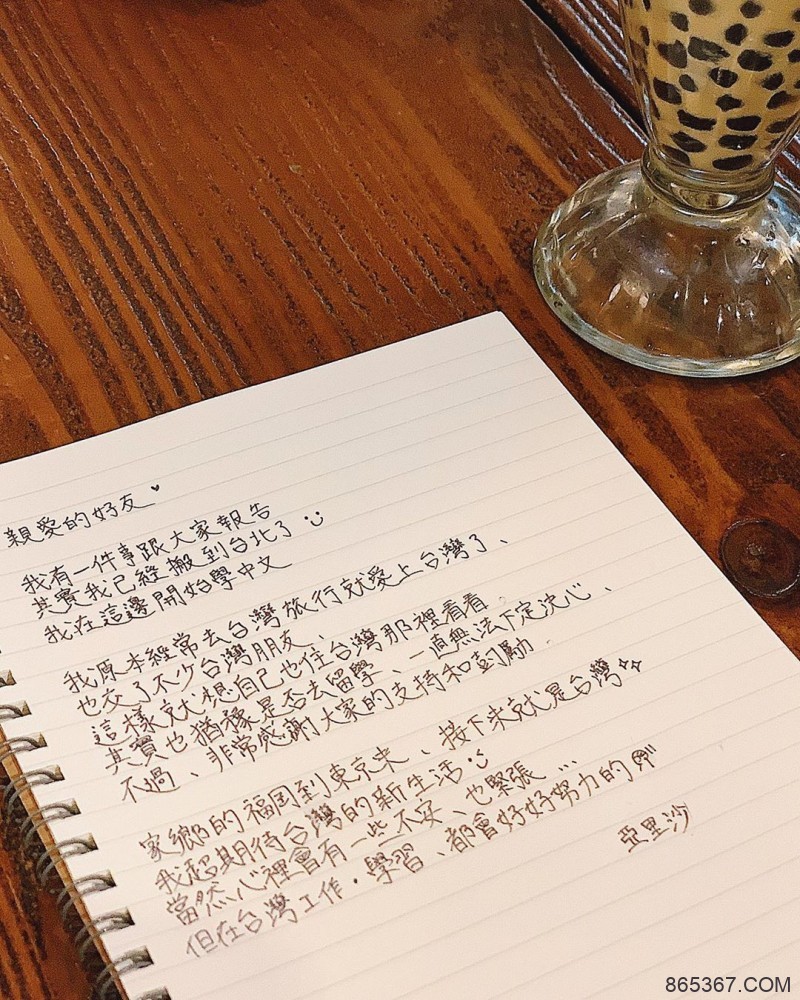 親愛的好友
我有一件事跟大家報告
其實我已經搬到台北了
我在這邊開始學中文
我原本經常去台灣旅行就愛上台灣了、
也交了不少台灣朋友、
這樣就想自己也住台灣那裡看看
其實也猶豫是否去留學、一直無法下定決心、
不過、非常感謝大家的支持和鼓勵.
家鄉的福岡到東京來、接下來就是台灣
我超期待台灣的新生活.
當然心裡會有一些不安、也緊張...
但在台灣工作.學習、都會好好努力的
亞里沙
865367.COM